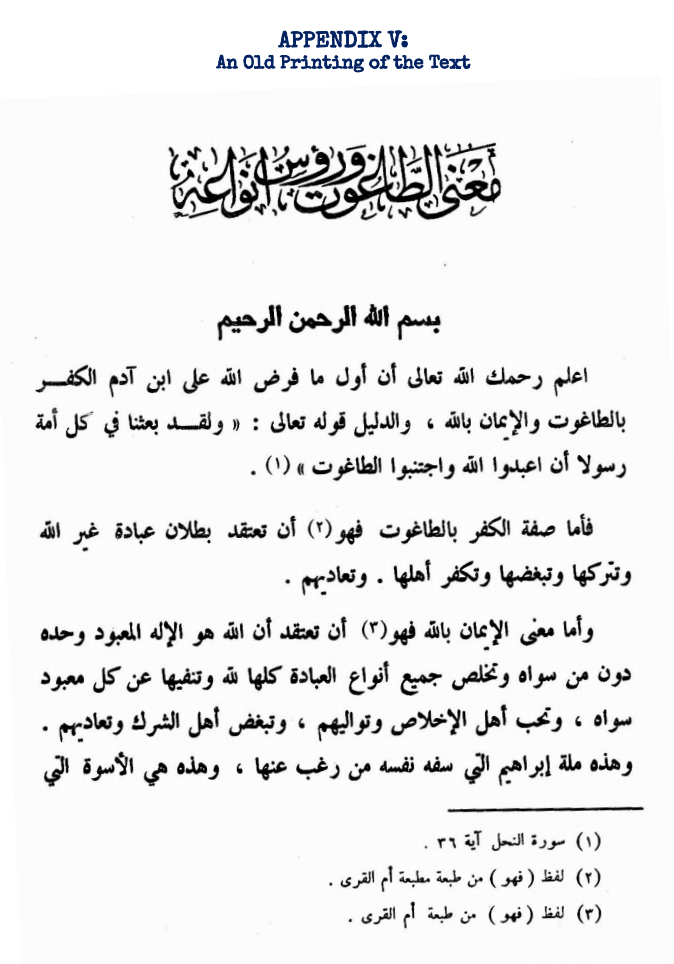 APPENDIX V:
An Old Printing of the Text
معنى الطاغوت ورؤس أنواعه
بسم الله الرحمن الرحيم
اعلم رحمك الله تعالى أن أول ما فرض الله على ابن آدم الكفـــر
بالطاغوت والإيمان بالله ، والدليل قوله تعالى : « ولقـــد بعثنا في كل أمة
رسولا أن اعبدوا الله واجتنبوا الطاغوت » (١) .
فأما صفة الكفر بالطاغوت فهو(٢) أن تعتقد بطلان عبادة غير الله
وتتركها وتبغضها وتكفر أهلها . وتعاديهم .
وأما معنى الإيمان بالله فهو(٣) أن تعتقد أن الله هو الإله المعبود وحده
دون من سواه وتخلص جميع أنواع العبادة كلها لله وتنفيها عن كل معبود
سواه ، وتحب أهل الإخلاص وتواليهم ، وتبغض أهل الشرك وتعاديهم .
وهذه ملة إبراهيم التي سفه نفسه من رغب عنها ، وهذه هي الأسوة التي
(١) سورة النحل آية ٣٦ .
(٢) لفظ ( فهو ) من طبعة مطبعة أم القرى .
(٣) لفظ ( فهو ) من طبعة أم القرى .